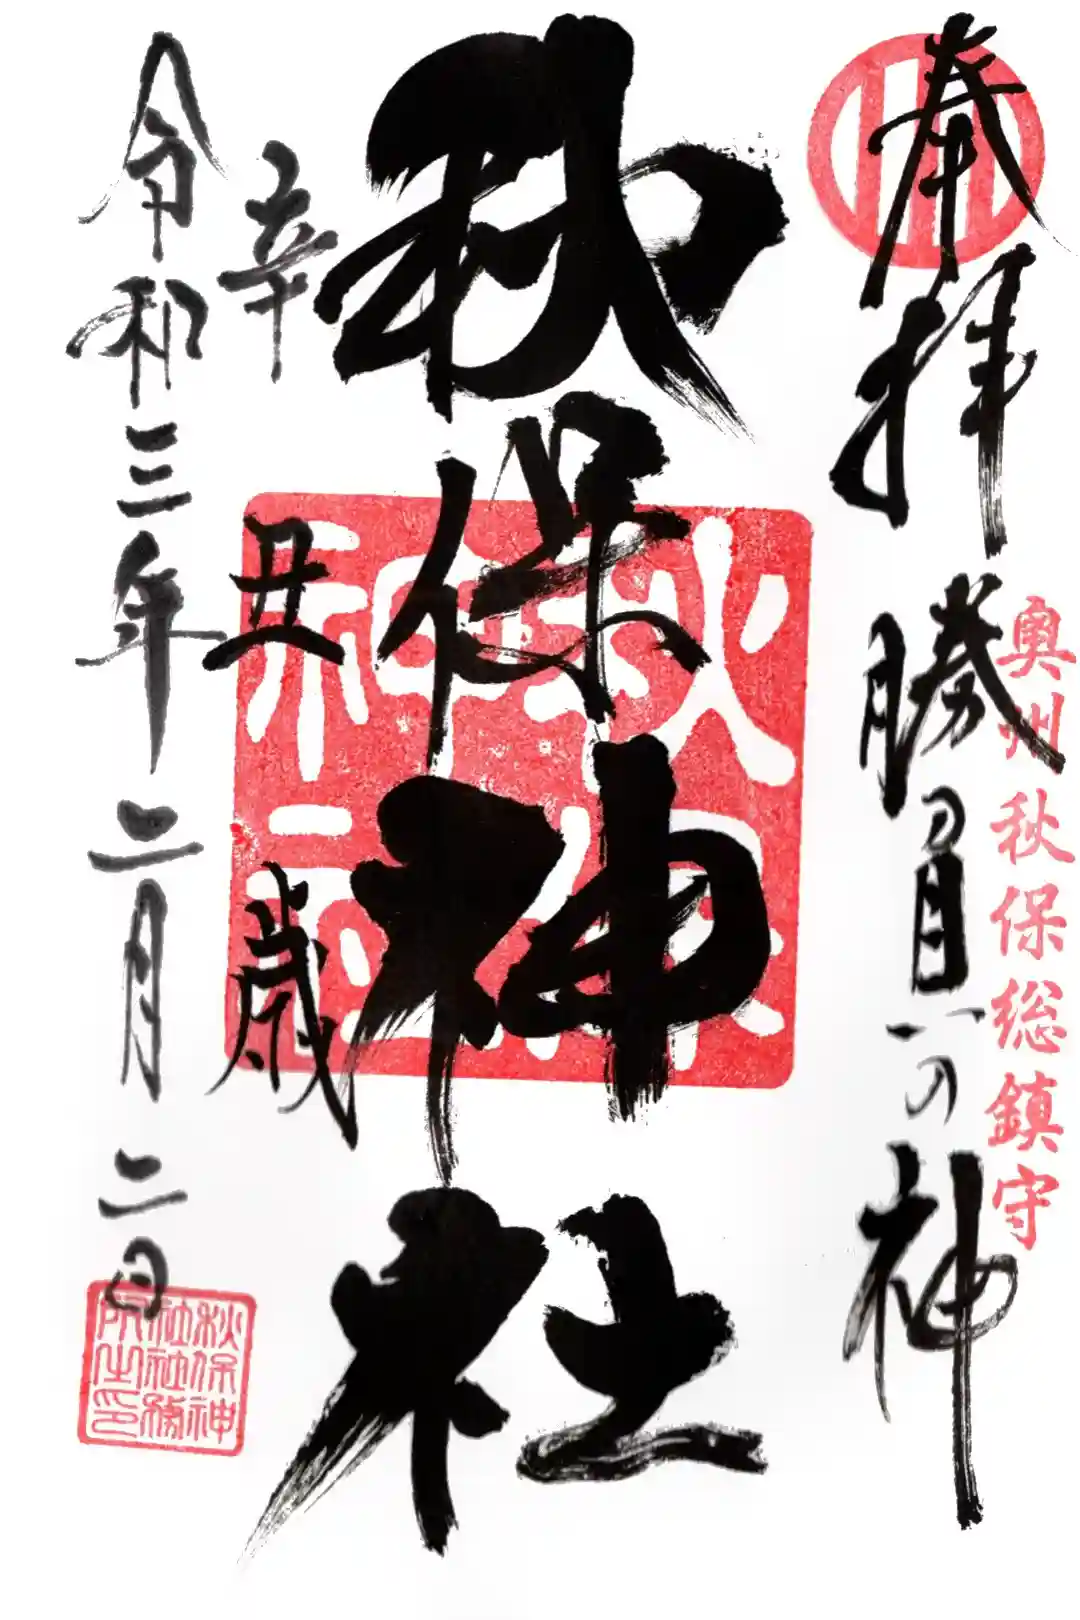 奥州秋保総鎮守
奉拝 勝負の神
秋保神社
秋保
神社
辛丑歳
令和三年二月二日
秋保神
社社務
所之印